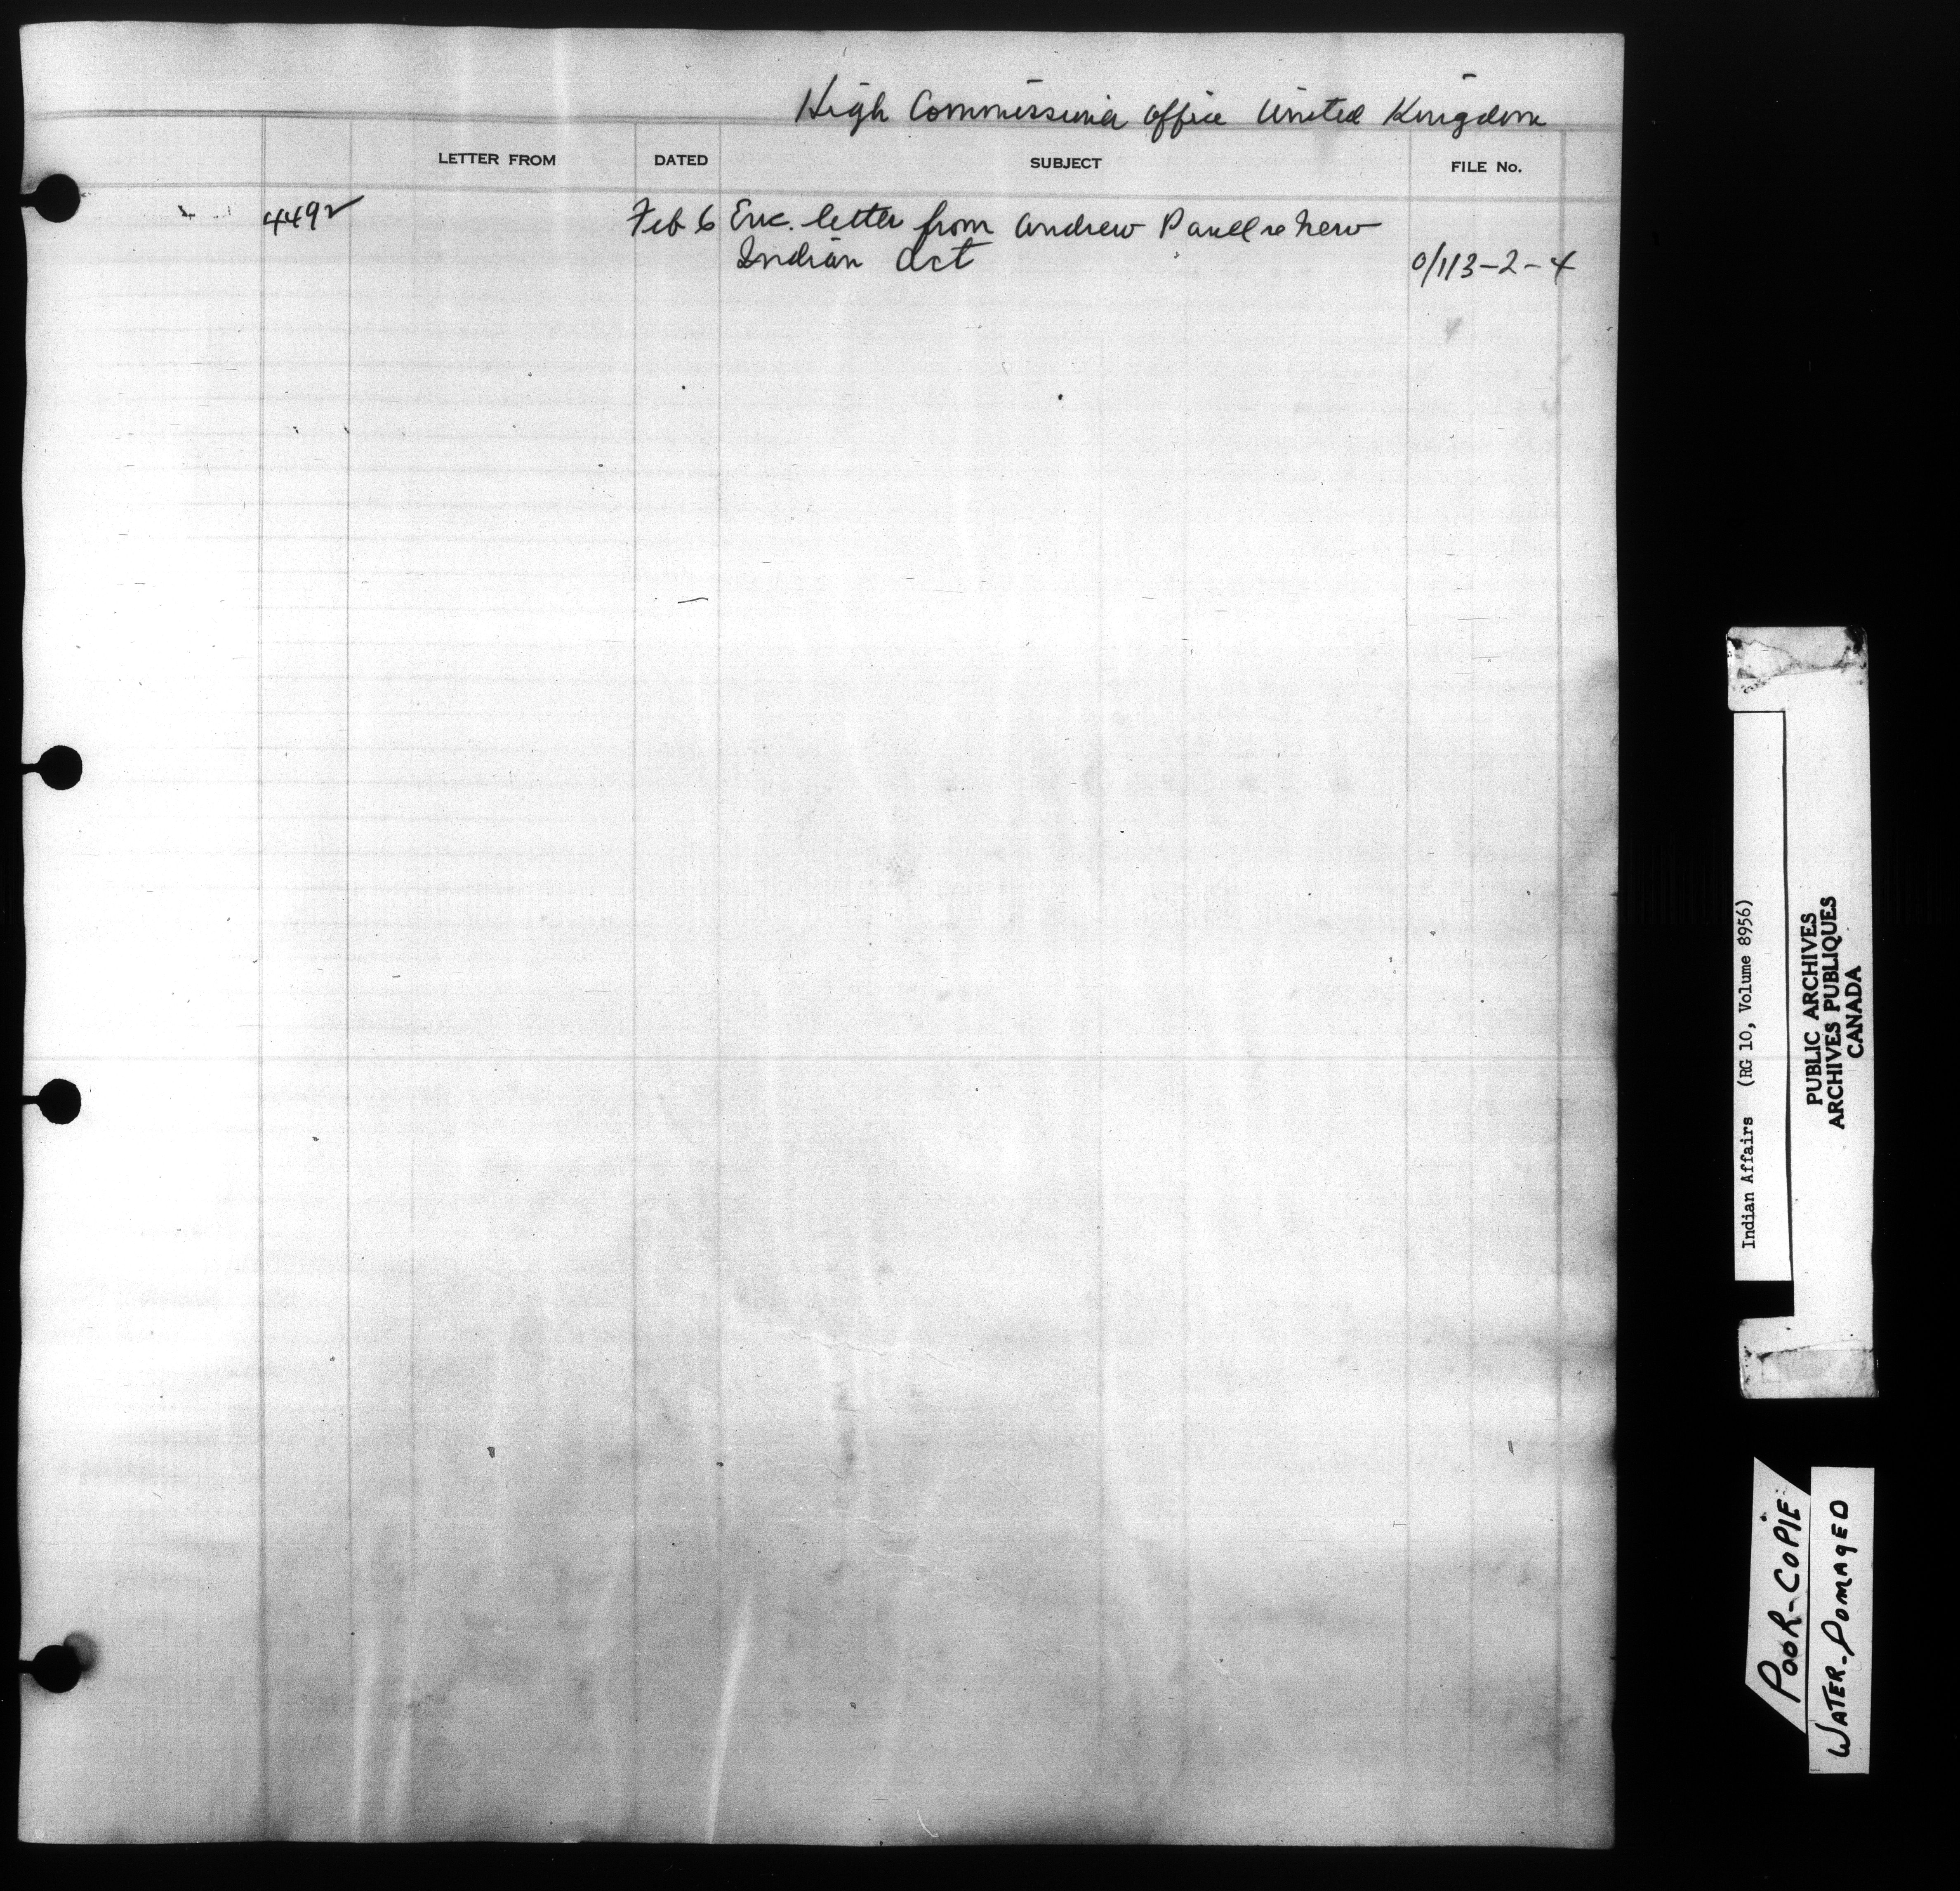 High Commissioner Office United Kingdom
LETTER FROM DATED SUBJECT FILE No.
4492 Feb 6 Enc. letter from Andrew Paull re new
Indian Act 0/113-2-4
Indian Affairs (RG 10, Volume 8956)
PUBLIC ARCHIVES
ARCHIVES PUBLIQUES
CANADA
POOR-COPIE
WATER-DOMAGED